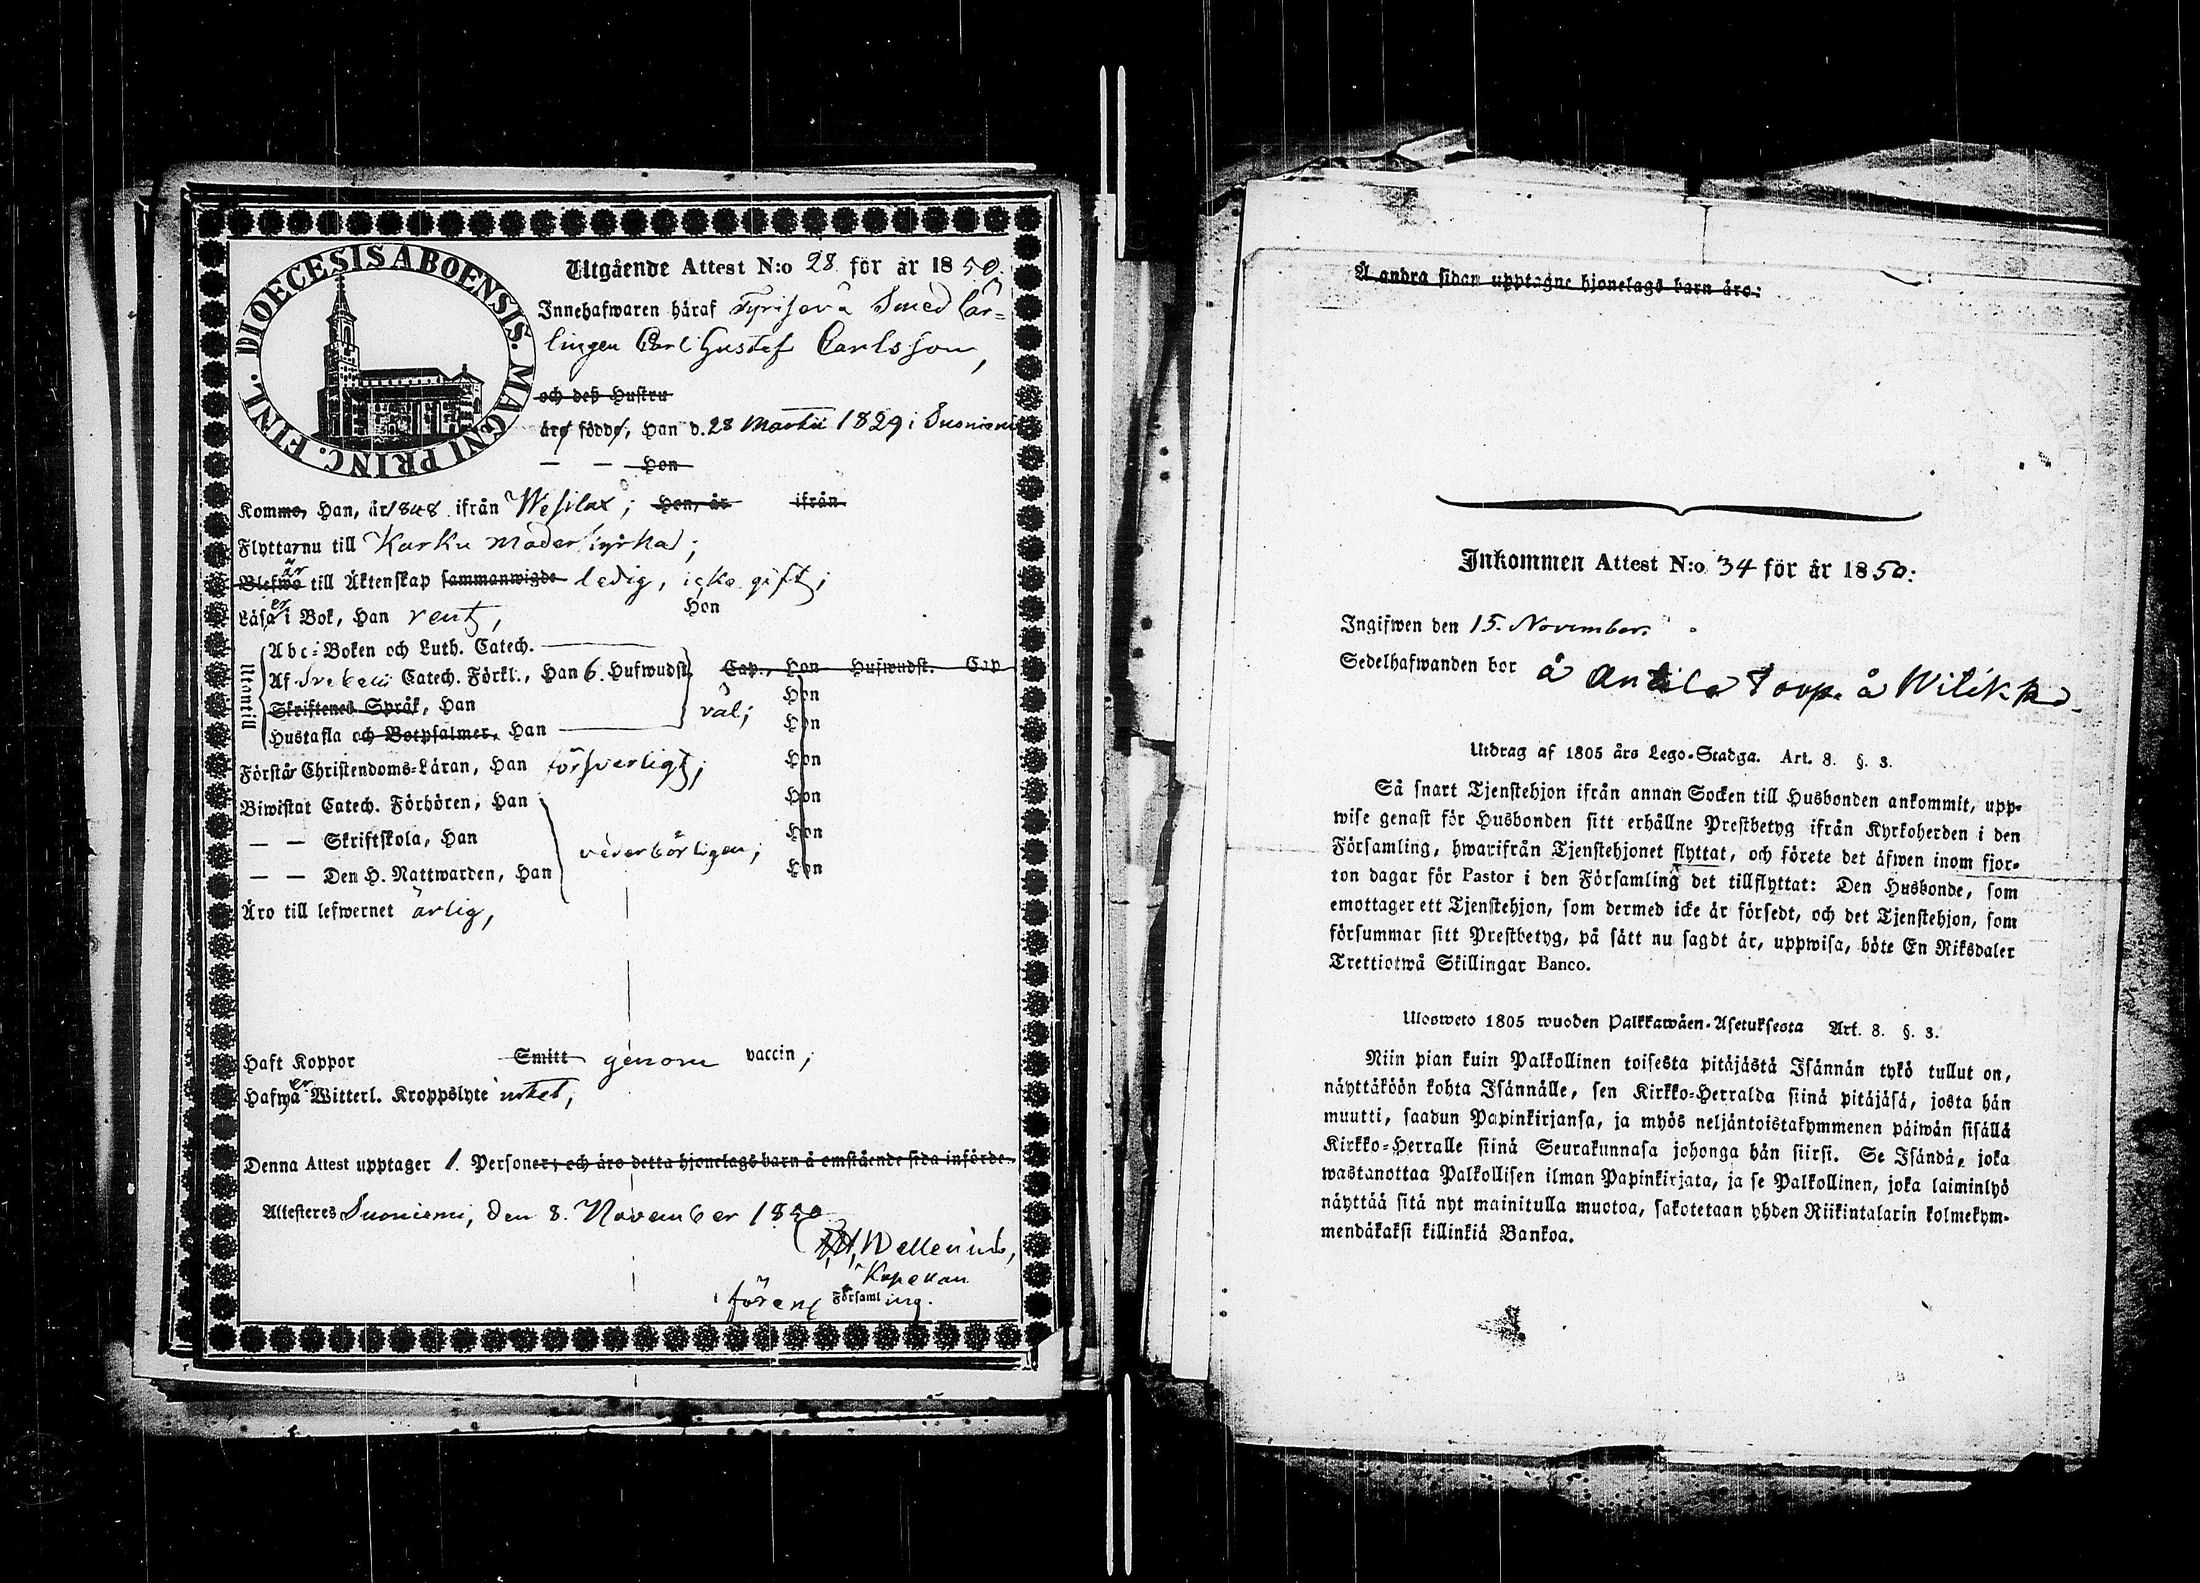 DIOECESIS ABOENSIS. MAGNI PRINC. FINL.
Utgående Attest N:o 28 för år 1850.
Innehafwaren häraf Smed Lär-
lingen Carl Gustaf Carlsson,
och deß Hustru
äro födde, Han d. 28 Martii 1829 i Suoniemi
— — Hon
Komme, Han, år 1848 ifrån Wesilax; Hon, år ifrån
Flyttar nu till Karku moderkyrka;
Blefwo är till Äktenskap sammanwigde ledig, icke gift;
Läsa er i Bok, Han rent, Hon
Utantill
Abc-Boken och Luth. Catech. ———
Af Svebelii Catech. Förkl., Han 6. Hufwudst. Cap., Hon Hufwudst. Cap
Skriftenes Språk, Han väl; Hon
Hustafla och Botpsalmer, Han ——— Hon
Förstår Christendoms-Läran, Han försvarligt; Hon
Biwistat Catech. Förhören, Han Hon
— — Skriftskola, Han vederbörligen; Hon
— — Den H. Nattwarden, Han Hon
Äro till lefwernet ärlig,
Haft Koppor Smitt genom vaccin;
Hafwa er Witterl. Kroppslyte intet;
Denna Attest upptager 1. Personer; och äro detta hjonelags barn å omstående sida införde.
Attesteres Suoniemi, den 8. November 1850
Wellenius,
Kapellan
i för en Församling.
Å andra sidan upptagne hjonelags barn äro:
Inkommen Attest N:o 34 för år 1850:
Ingifwen den 15. November.
Sedelhafwanden bor å Antila Torp å Wilikka
Utdrag af 1805 års Lego-Stadga. Art. 8. §. 3.
Så snart Tjenstehjon ifrån annan Socken till Husbonden ankommit, upp-
wise genast för Husbonden sitt erhållne Prestbetyg ifrån Kyrkoherden i den
Församling, hwarifrån Tjenstehjonet flyttat, och förete det äfwen inom fjor-
ton dagar för Pastor i den Församling det tillflyttat: Den Husbonde, som
emottager ett Tjenstehjon, som dermed icke är försedt, och det Tjenstehjon, som
försummar sitt Prestbetyg, på sätt nu sagdt är, uppwisa, böte En Riksdaler
Trettiotwå Skillingar Banco.
Ulosweto 1805 wuoden Palkkawäen-Asetuksesta Art. 8. §. 3.
Niin pian kuin Palkollinen toisesta pitäjästä Isännän tykö tullut on,
näyttäköön kohta Isännälle, sen Kirkko-Herralda siinä pitäjäsä, josta hän
muutti, saadun Papinkirjansa, ja myös neljäntoistakymmenen päiwän sisällä
Kirkko-Herralle siinä Seurakunnasa johonga hän siirsi. Se Isändä, joka
wastanottaa Palkollisen ilman Papinkirjata, ja se Palkollinen, joka laiminlyö
näyttää sitä nyt mainitulla muotoa, sakotetaan yhden Riikintalarin kolmekym-
mendäkaksi killinkiä Bankoa.